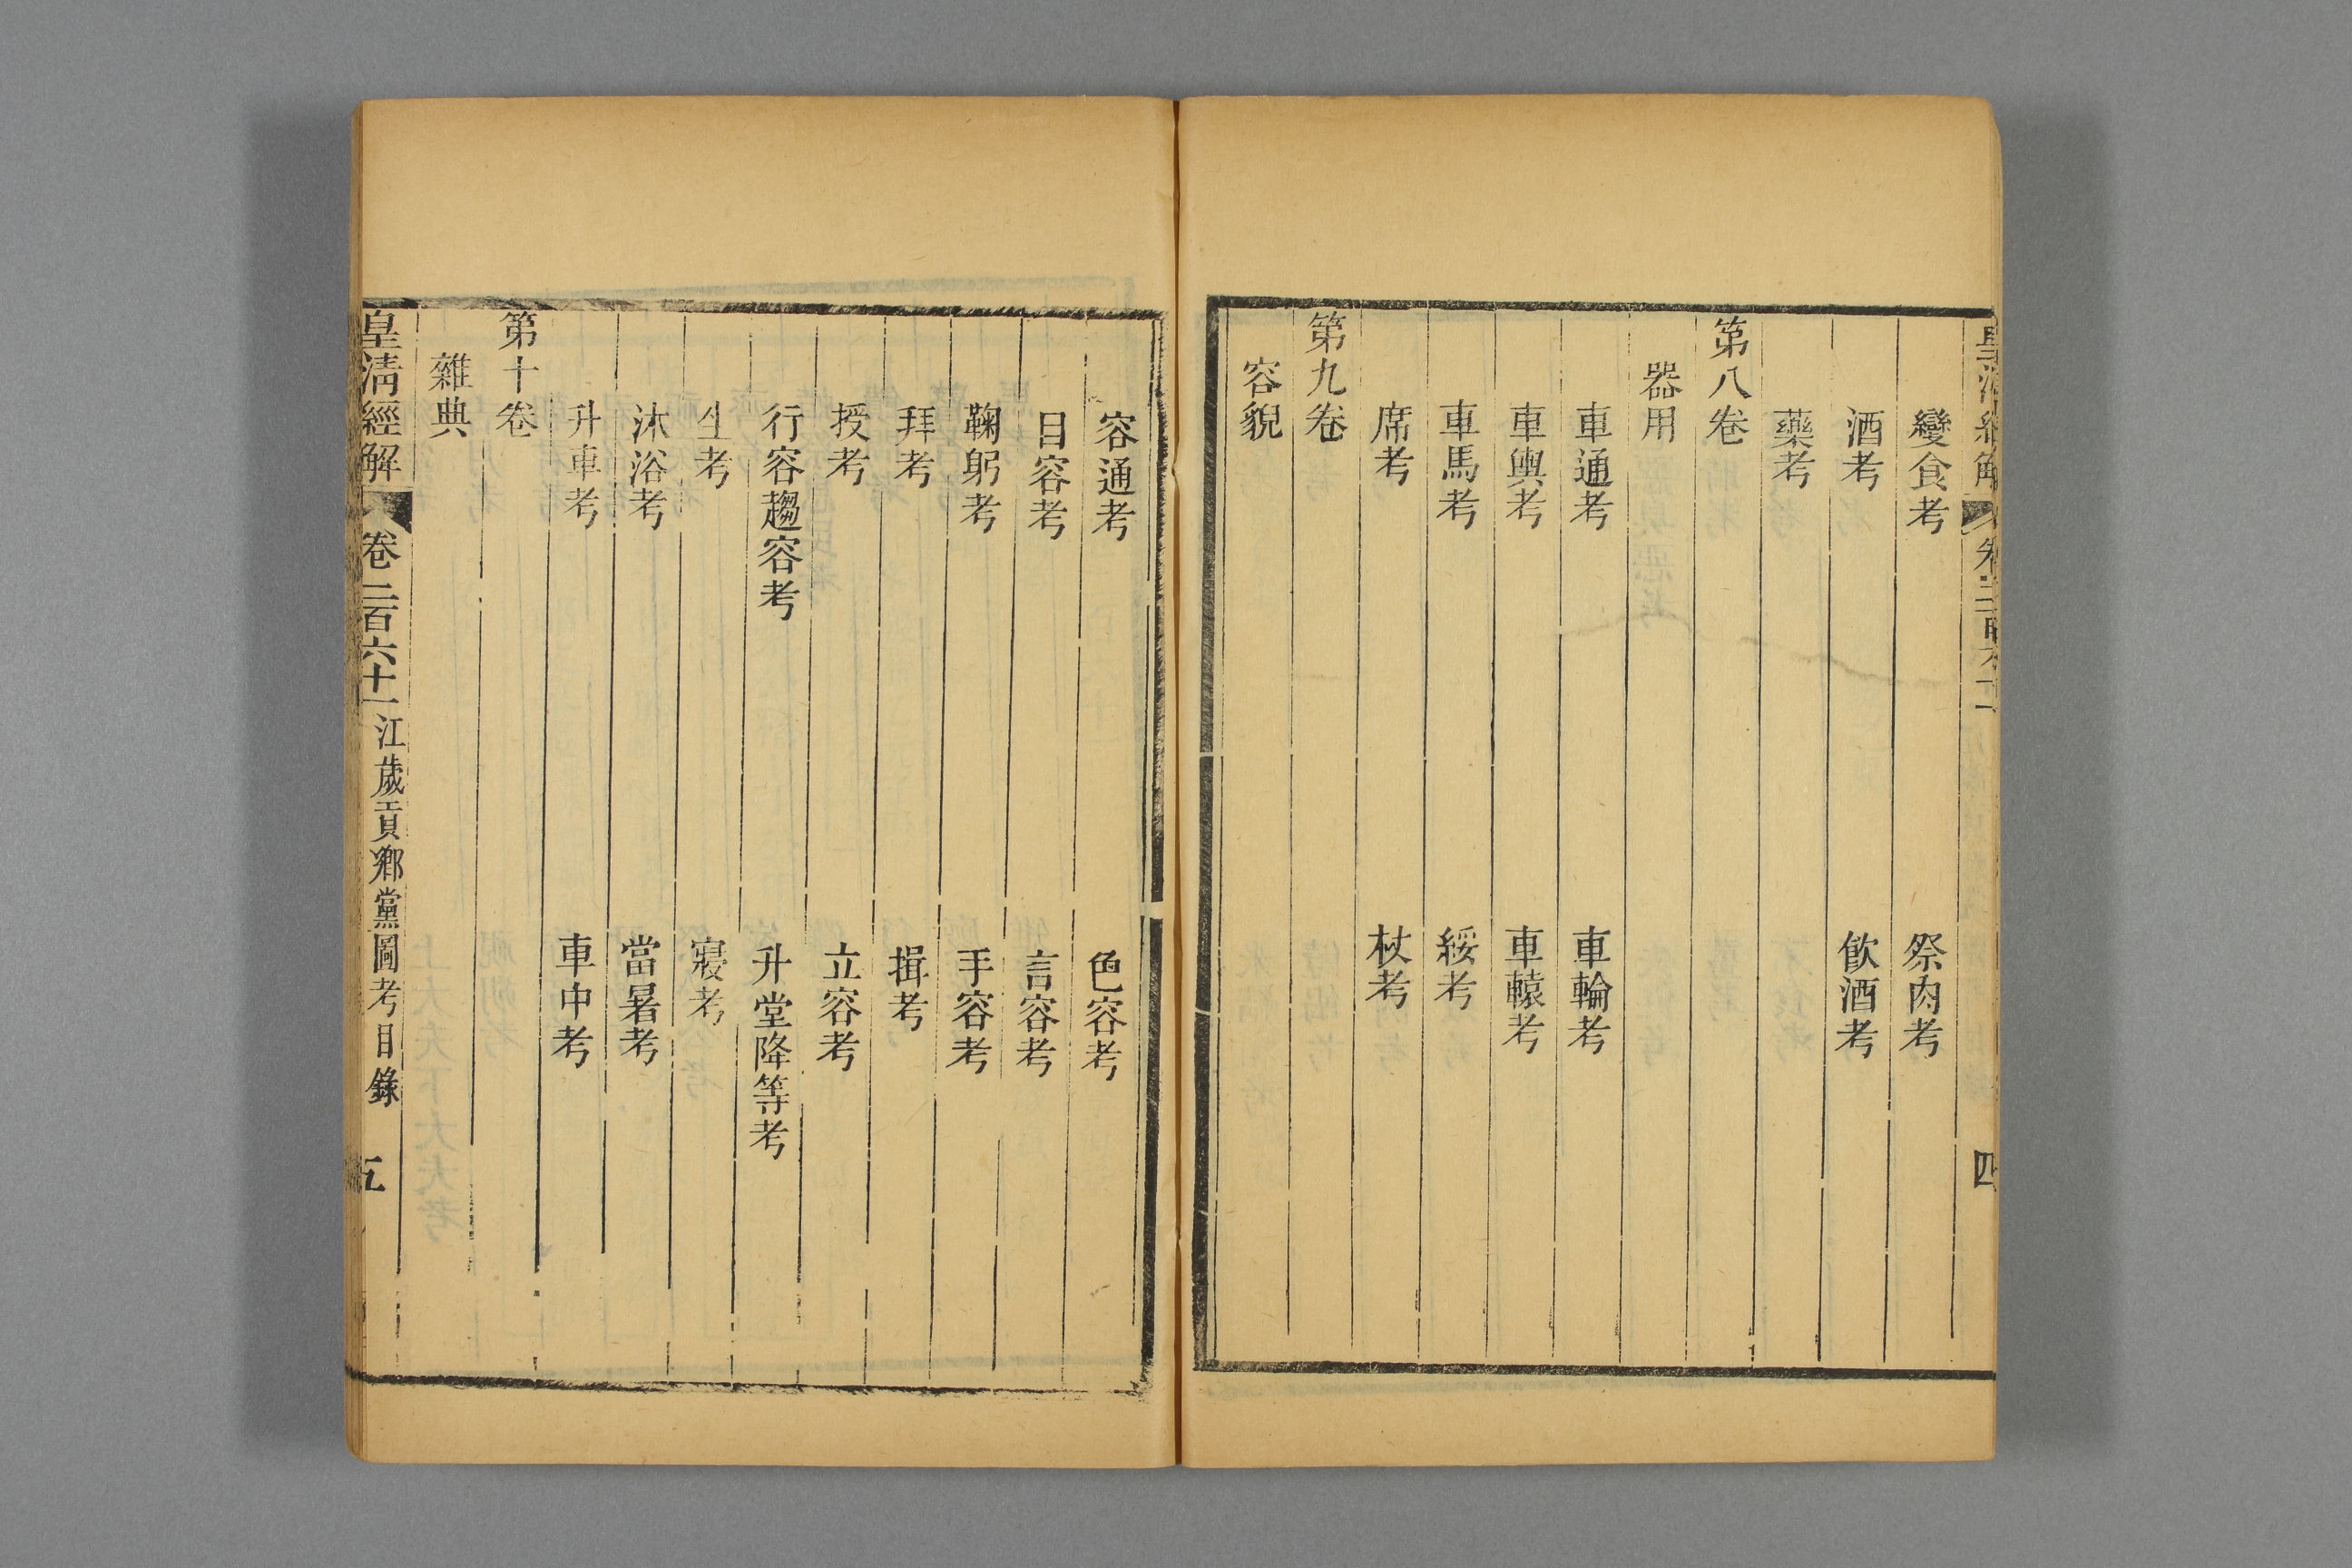 皇清經解 卷二百六十一 四
變食考 祭肉考
酒考 飲酒考
藥考
第八卷
器用
車通考 車輪考
車輿考 車轅考
車馬考 綏考
席考 杖考
第九卷
容貌
容通考 色容考
目容考 言容考
鞠躬考 手容考
拜考 揖考
授考 立容考
行容趨容考 升堂降等考
坐考 寢考
沐浴考 當暑考
升車考 車中考
第十卷
雜典
皇清經解 卷二百六十一 江歲貢鄉黨圖考目錄 五